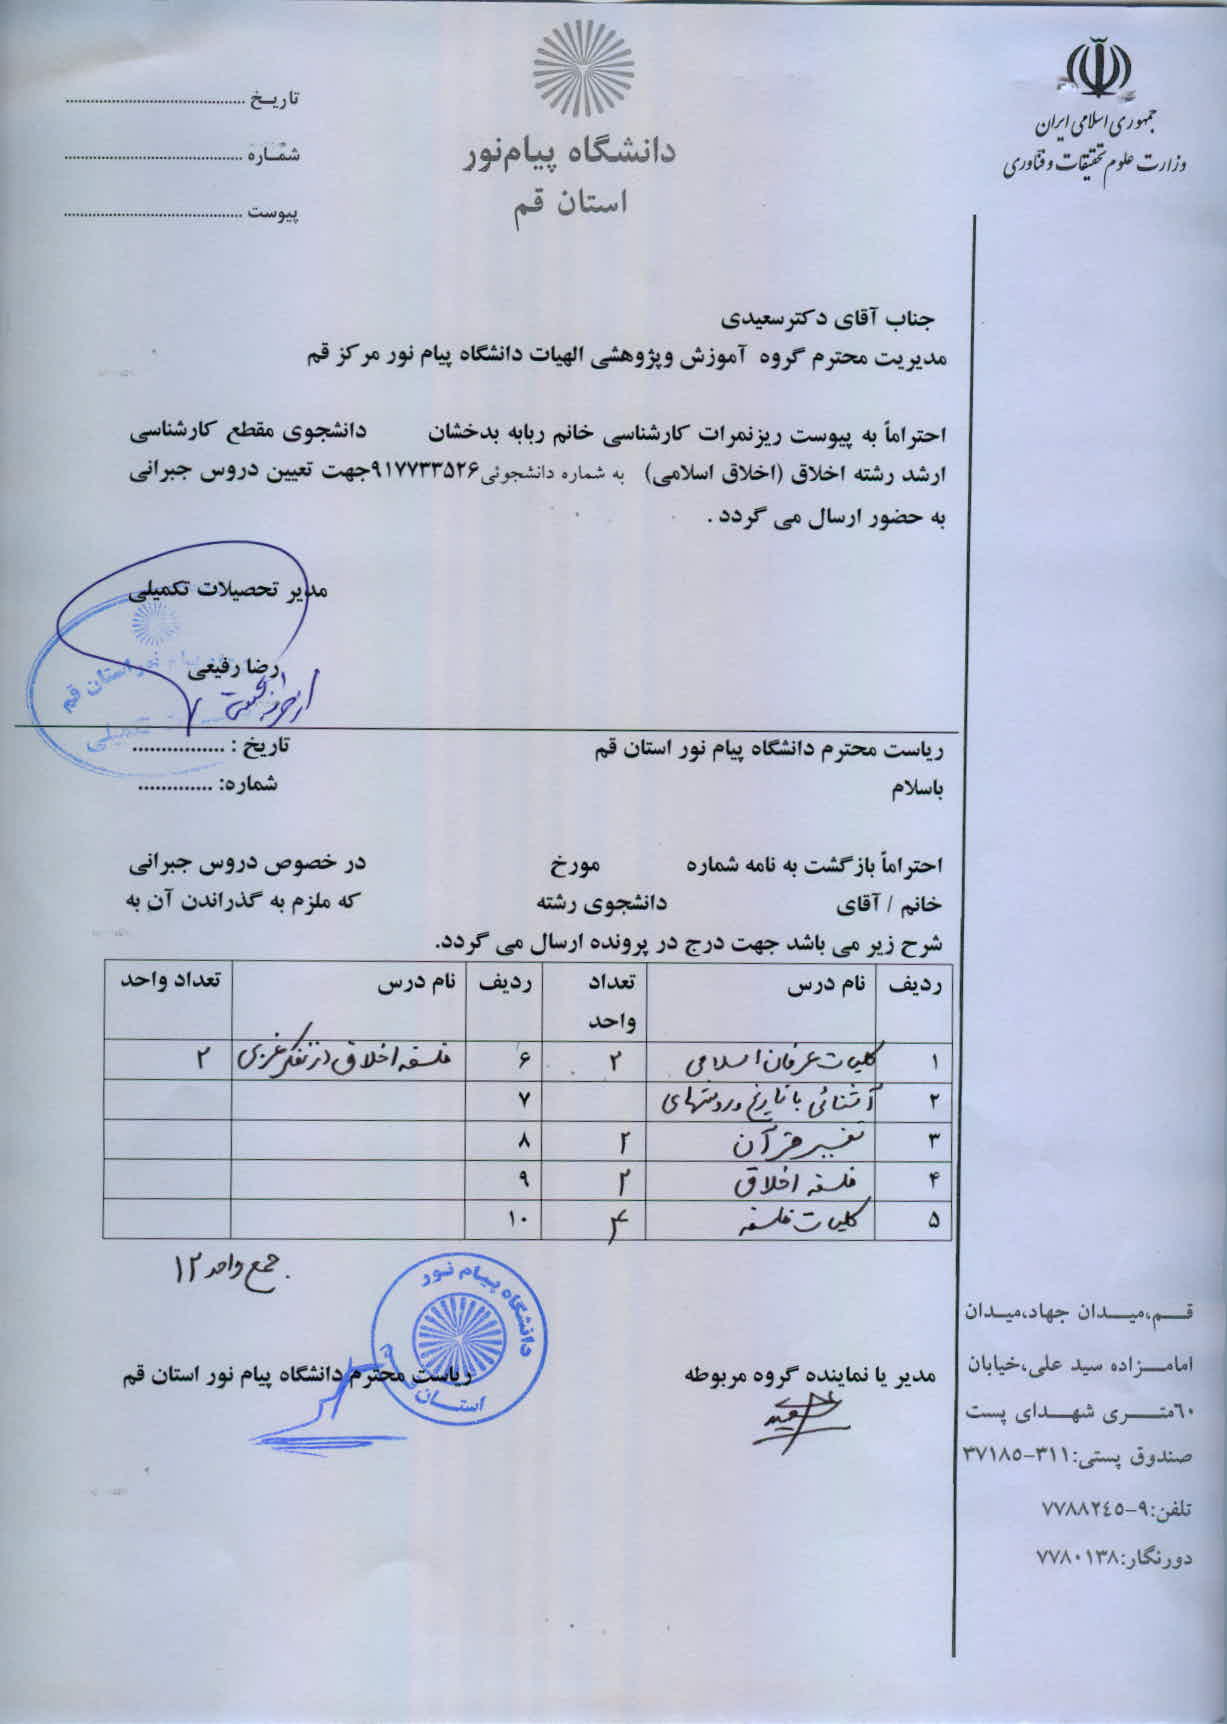 جمهوری اسلامی ایران
وزارت علوم تحقیقات و فناوری
دانشگاه پیام‌نور
استان قم
تاریـخ ............................................
شمـاره ............................................
پیوست ............................................
جناب آقای دکترسعیدی
مدیریت محترم گروه آموزش وپژوهشی الهیات دانشگاه پیام نور مرکز قم
احتراماً به پیوست ریزنمرات کارشناسی خانم ربابه بدخشان دانشجوی مقطع کارشناسی
ارشد رشته اخلاق (اخلاق اسلامی) به شماره دانشجوئی۹۱۷۷۳۳۵۲۶جهت تعیین دروس جبرانی
به حضور ارسال می گردد .
مدیر تحصیلات تکمیلی
رضا رفیعی
نور استان قم
تکمیلی
ریاست محترم دانشگاه پیام نور استان قم تاریخ : ................
باسلام شماره: .............
احتراماً بازگشت به نامه شماره مورخ در خصوص دروس جبرانی
خانم / آقای دانشجوی رشته که ملزم به گذراندن آن به
شرح زیر می باشد جهت درج در پرونده ارسال می گردد.
ردیف نام درس تعداد واحد ردیف نام درس تعداد واحد
۱ کلیات عرفان اسلامی ۲ ۶ فلسفه اخلاق در تفکر غربی ۲
۲ آشنائی با تاریخ و روشهای ۷
۳ تفسیر قرآن ۲ ۸
۴ فلسفه اخلاق ۲ ۹
۵ کلیات فلسفه ۴ ۱۰
جمع واحد ۱۲
دانشگاه پیام نور
استان قم
مدیر یا نماینده گروه مربوطه ریاست محترم دانشگاه پیام نور استان قم
قـــم،میـــدان جهاد،میـدان
امامـــزاده سید علی،خیابان
٦٠متـــری شهـــدای پست
صندوق پستی:۳۱۱-۳۷۱۸۵
تلفن:۹-۷۷۸۸۲٤٥
دورنگار:۷۷۸۰۱۳۸